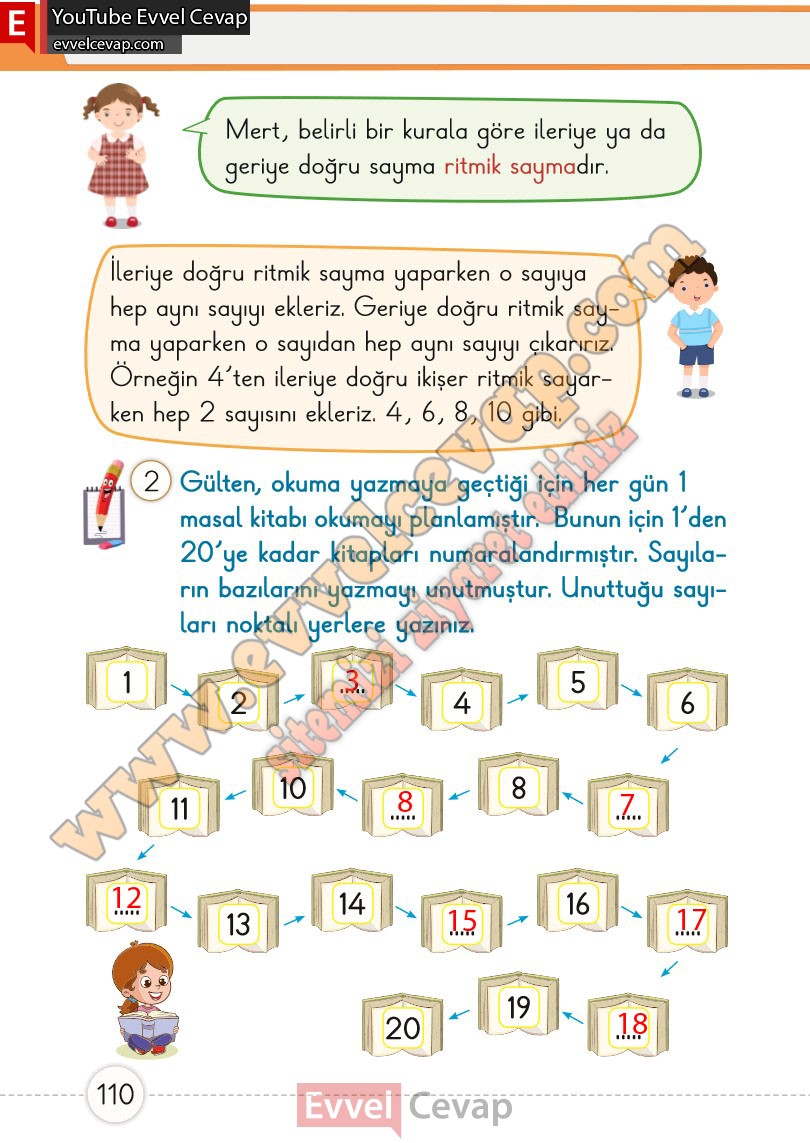 E YouTube Evvel Cevap
evvelcevap.com
Mert, belirli bir kurala göre ileriye ya da
geriye doğru sayma ritmik saymadır.
İleriye doğru ritmik sayma yaparken o sayıya
hep aynı sayıyı ekleriz. Geriye doğru ritmik say-
ma yaparken o sayıdan hep aynı sayıyı çıkarırız.
Örneğin 4'ten ileriye doğru ikişer ritmik sayar-
ken hep 2 sayısını ekleriz. 4, 6, 8, 10 gibi.
2 Gülten, okuma yazmaya geçtiği için her gün 1
masal kitabı okumayı planlamıştır. Bunun için 1'den
20'ye kadar kitapları numaralandırmıştır. Sayıla-
rın bazılarını yazmayı unutmuştur. Unuttuğu sayı-
ları noktalı yerlere yazınız.
1 2 3 4 5 6
11 10 8 8 7
12 13 14 15 16 17
20 19 18
110
Evvel Cevap
www.evvelcevap.com
sitemizi ziyaret ediniz